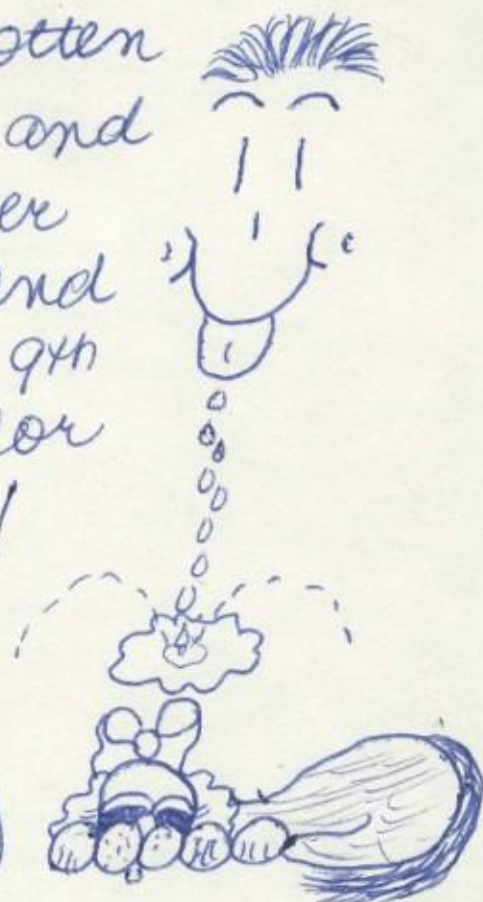 otten
and
er
nd
9th
or